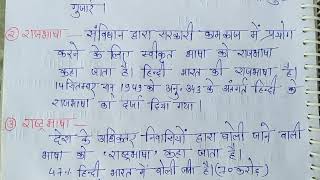 गुजार ।
② राजभाषा — संविधान द्वारा सरकारी कामकाज में प्रयोग
करने के लिए स्वीकृत भाषा को राजभाषा
कहा जाता है। हिन्दी भारत की राजभाषा है।
14 सितम्बर सन् 1949 को अनु. 343 के अंतर्गत हिन्दी के
राजभाषा का दर्जा दिया गया।
③ राष्ट्रभाषा — देश के अधिकतर निवासियों द्वारा बोली जाने वाली
भाषा को 'राष्ट्रभाषा' कहा जाता है।
47% हिन्दी भारत में बोली जाती है। (70 करोड़)